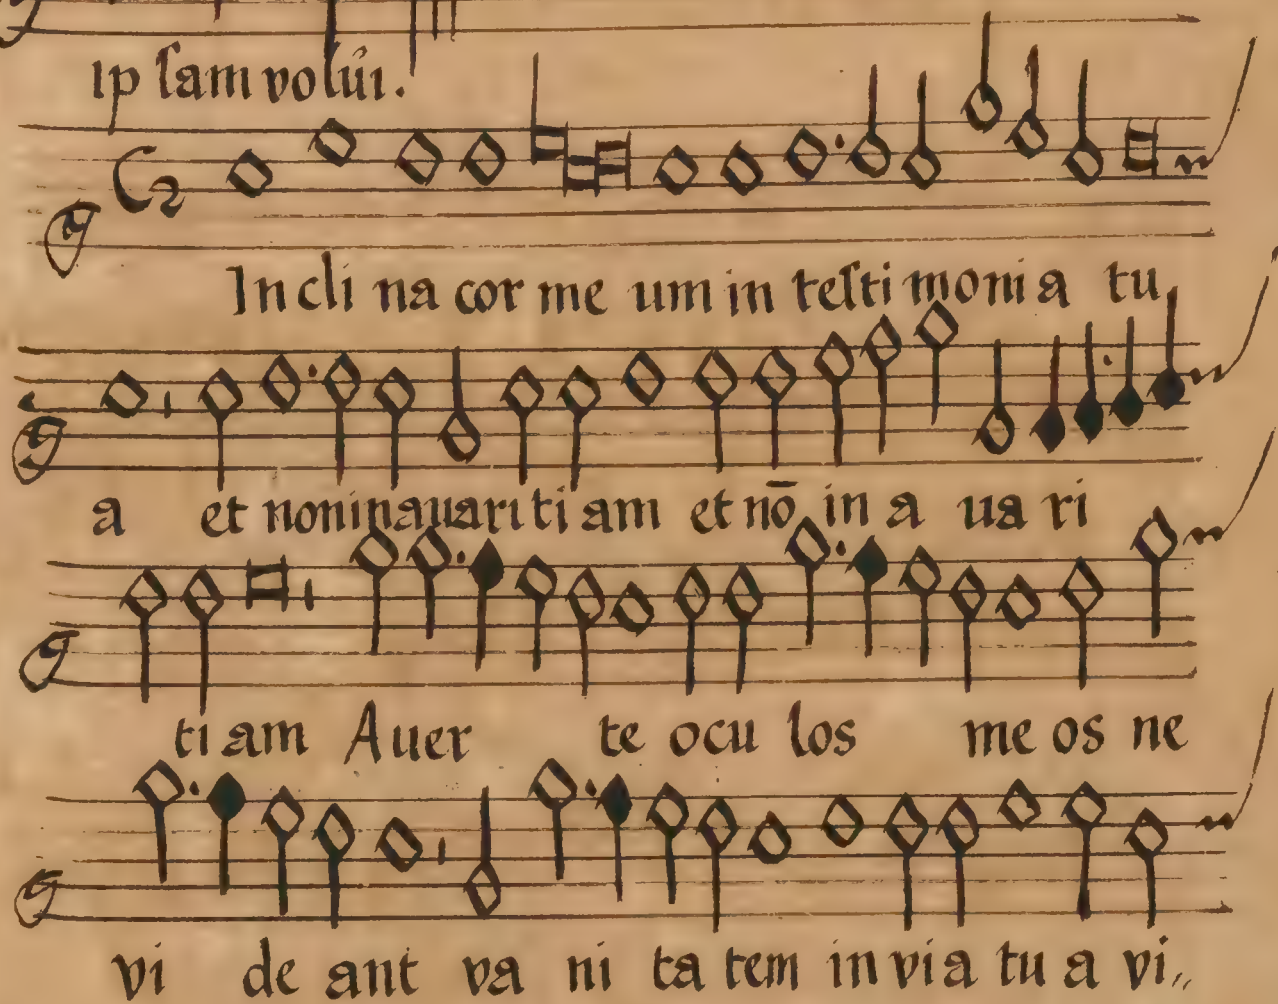 ip ſam volui.
In cli na cor me um in teſti moni a tu
a et non in auari ti am et nō in a ua ri
ti am A uer te ocu los me os ne
vi de ant va ni ta tem in vi a tu a vi,,